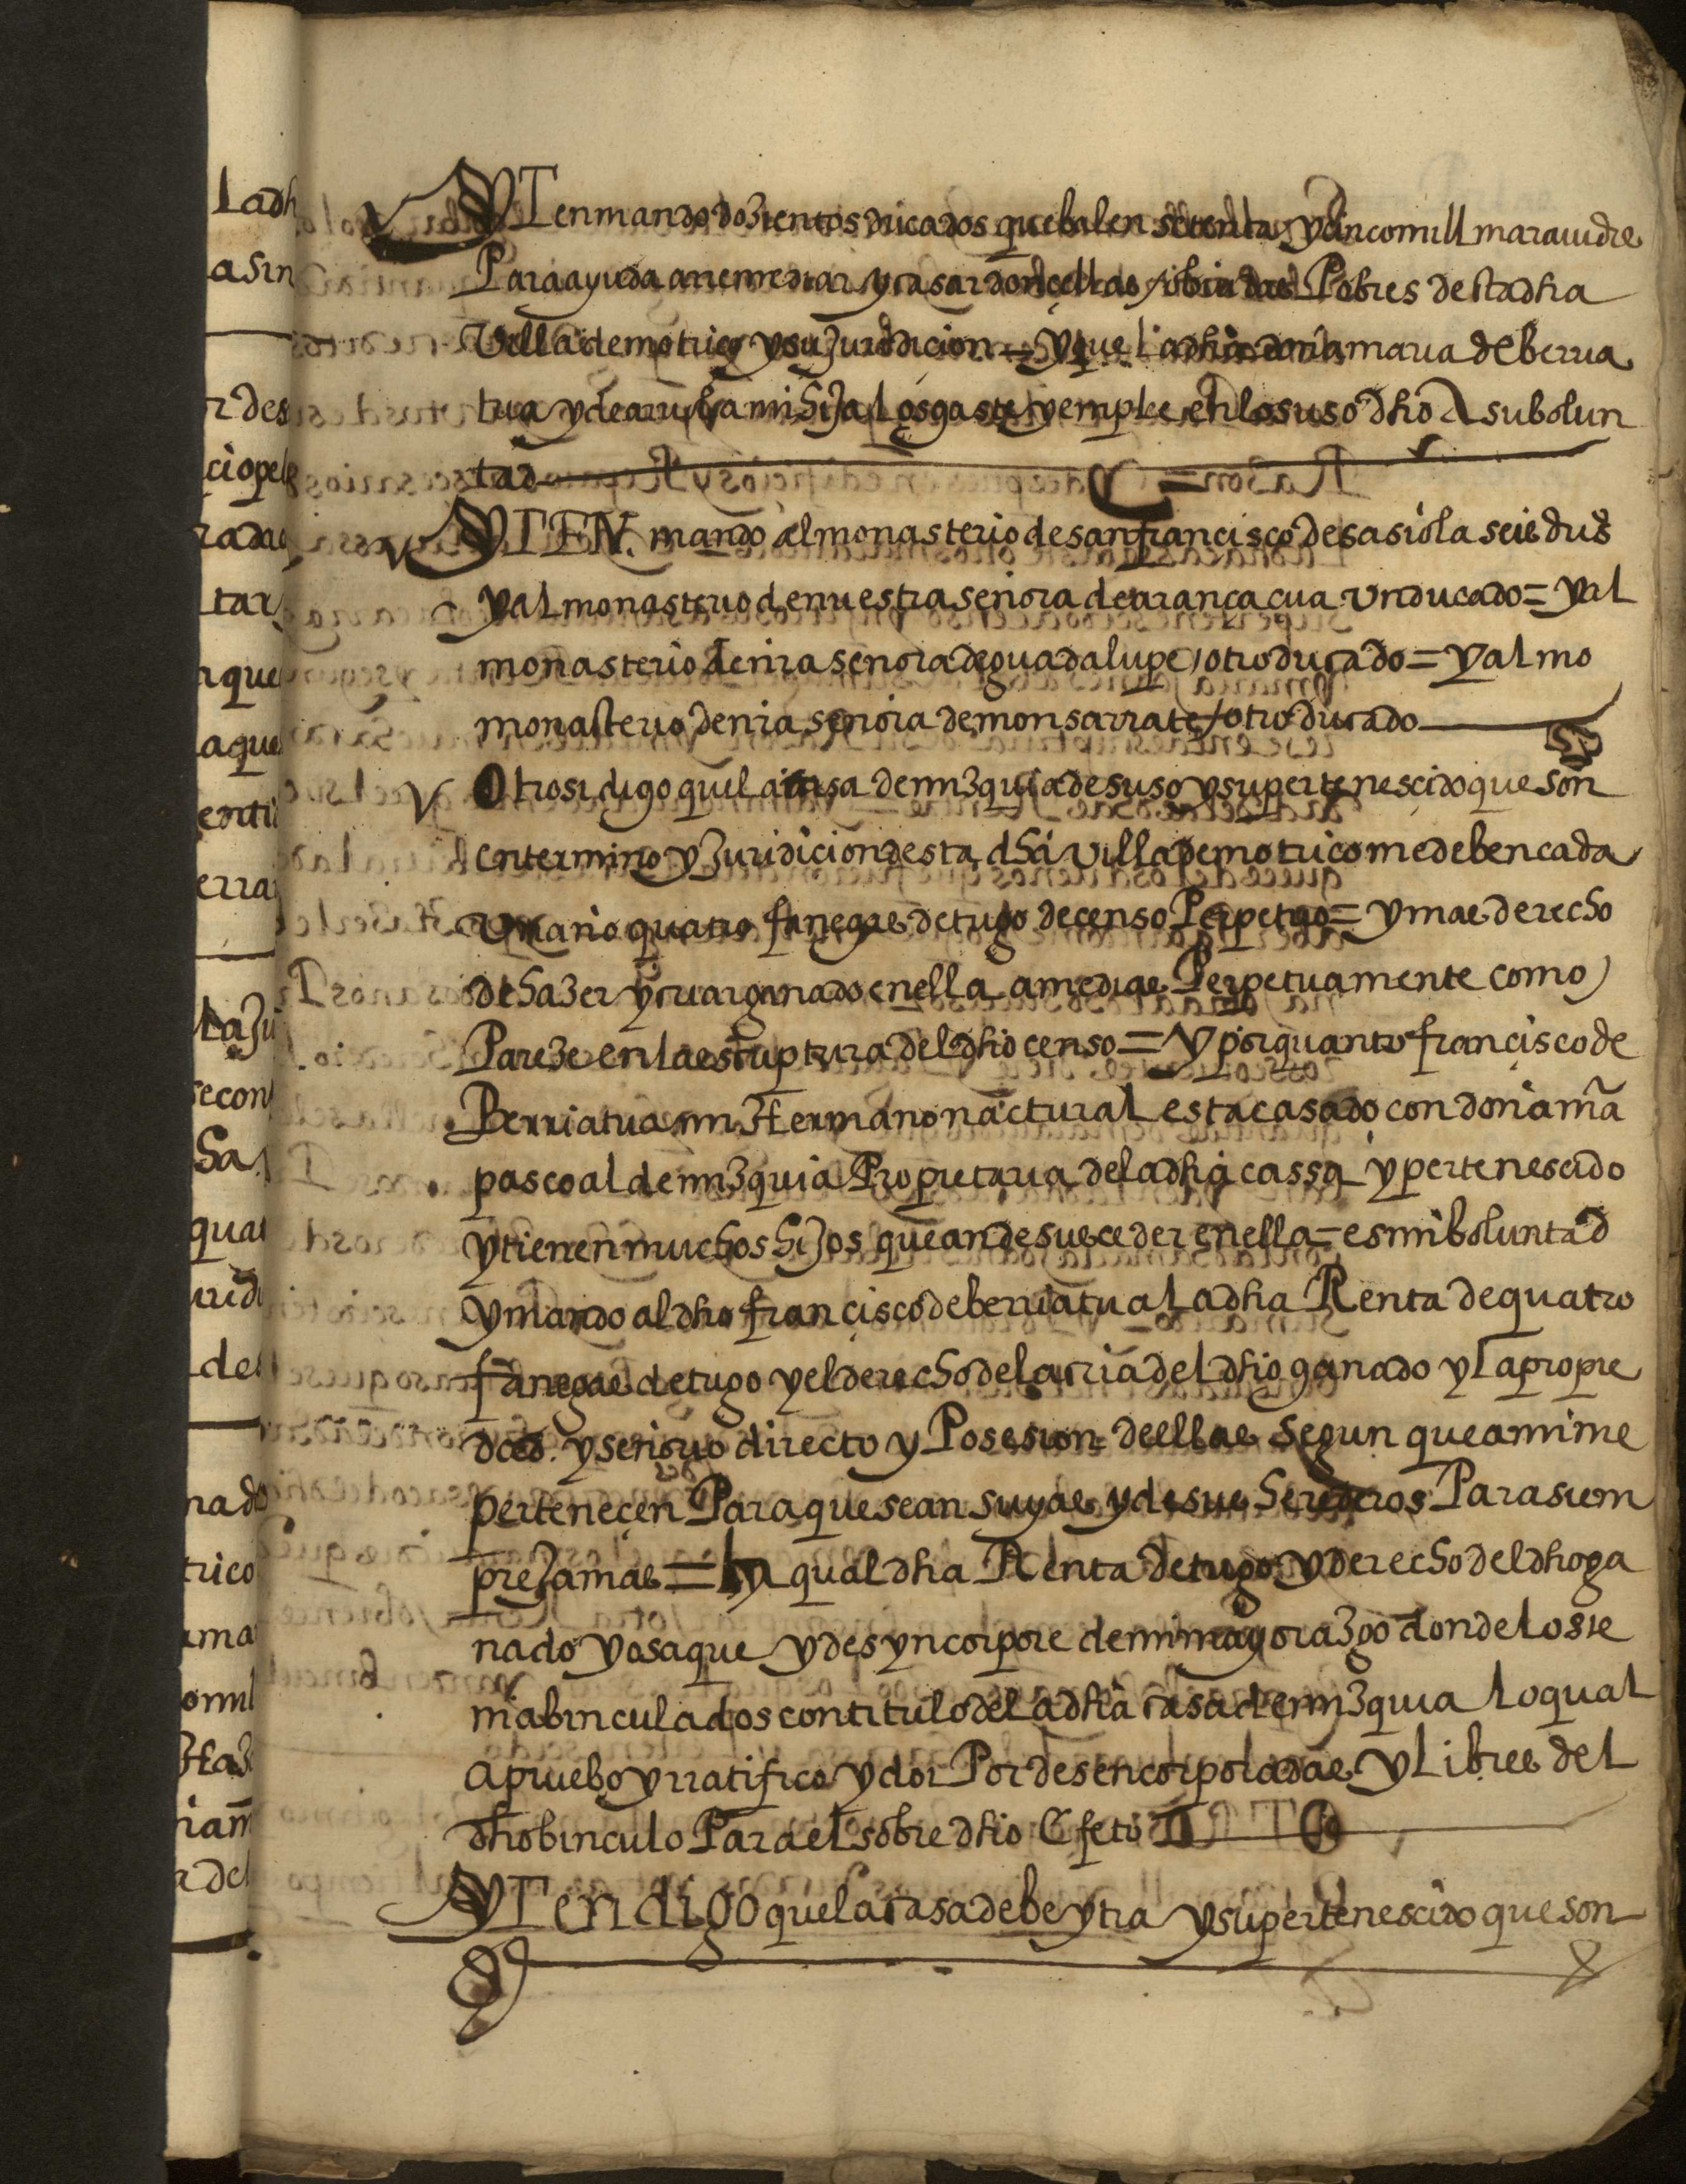 YTen mando dozientos ducados que balen setenta y cinco mill marauidis
Para ayuda a rremediar y casar donçellas / o biudas Pobres desta dha
Villa de motrico y su Juridicion = y que la dha doña maria de berria
tua y de arriba mi hiJa Los gaste y emplee en lo suso dho A su bolun
tad
YTEN. mando al monasterio de san françisco de sasiola seis dus
y al monasterio de nuestra señora de arançaçua Vn ducado = y al
monasterio de nra señora de guadalupe / otro ducado = y al mo
monasterio de nra señora de monsarrate / otro ducado
Otrosi digo quel a casa de mizquia de suso y su pertenesçido que son
en termino y Juridiçion desta dha Villa de motrico me deben cada
Vn año quatro fanegas de trigo de censo Perpetuo = y mas derecho
de hazer y criar ganado en ella a medias Perpetuamente como
Pareze en la escriptura del dho censo = y por quanto françisco de
Berriatua mi Hermano nactural esta casado con doña ma
pascoal de mizquia Propietaria de la dha cassa y pertenescido
y tienen muchos hiJos que an de suceder en ella = es mi boluntad
y mando al dho françisco de berriatua La dha Renta de quatro
fanegas de trigo y el derecho de la cria del dho ganado y La propie
dad. y señorio directo y Posesion de ellas segun que a mi me
perteneçen Para que sean suyas y de sus herederos Para siem
pre Jamas = la qual dha Renta de trigo y derecho del dho ga
nado yo saque y desyncorpore de mi mayorazgo donde los te
nia binculados con titulo de la dha casa de mizquia Lo qual
apruebo y rratifico y doi Por desencorporadas y Libres del
dho binculo Para el sobre dho Efeto
YTen digo que la casa de beytia y su pertenescido que son